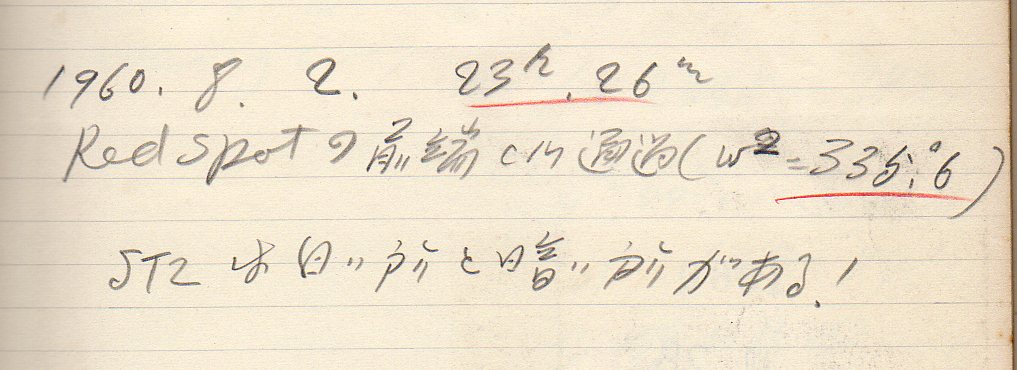 1960. 8. 2. 23h. 26m
Red Spotの前端CM通過(ω2=335°.6)
STZは白い所と暗い所がある!